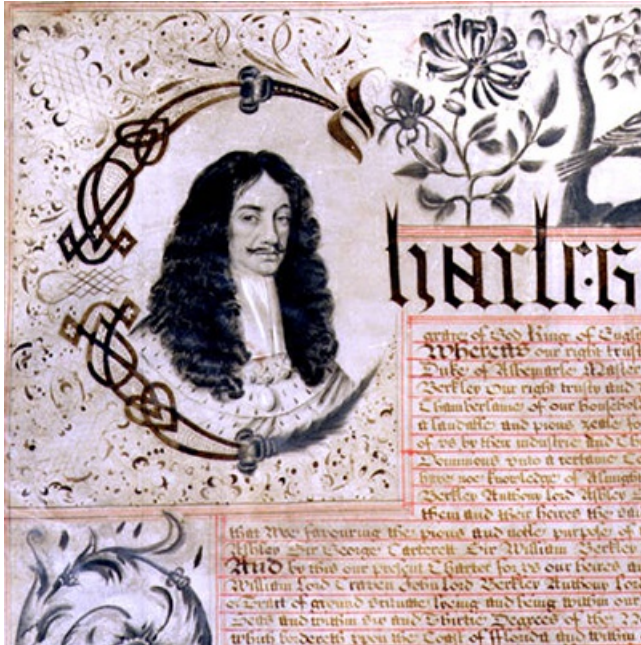 Charles
grace of God King of Engl
Whereas our right trust
Duke of Albemarle Master
Berkley Our right trusty and
Chamberlaine of our househol
a laudable and pious zeale fo
of vs by their industrie and Ch
Dominions vnto a certaine C
have noe knowledge of Almigh
Berkley Anthony lord Ashley
them and their heires the sai
that Wee favouring the pious and noble purpose of
Ashley Sir George Carterett Sir William Berkley
And by this our present Charter for vs our heires an
William Lord Craven John Lord Berkley Anthony Lo
or Tract of ground scituate lyeing and being within our
Seas and within Six and Thirtie Degrees of the No
which bordereth vpon the Coast of Florida and within